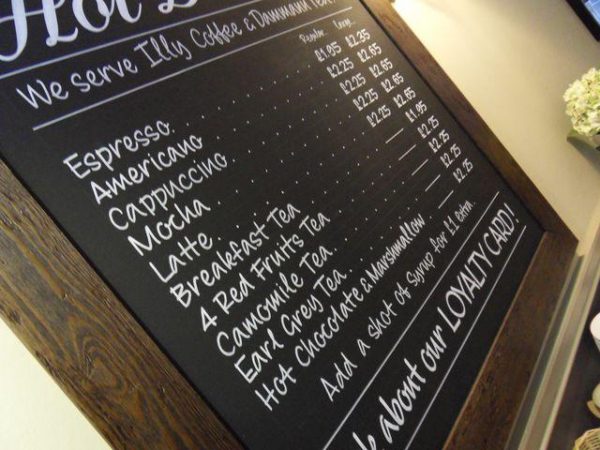 Hot
We serve Illy Coffee & Dammann Tea
Regular Large
Espresso £1.95 £2.35
Americano £2.25 £2.65
Cappuccino £2.25 £2.65
Mocha £2.25 £2.65
Latte £2.25 £2.65
Breakfast Tea — £1.95
4 Red Fruits Tea — £2.25
Camomile Tea — £2.25
Earl Grey Tea — £2.25
Hot Chocolate & Marshmallow — £2.25
Add a shot of Syrup for £1 extra...
about our LOYALTY CARD!